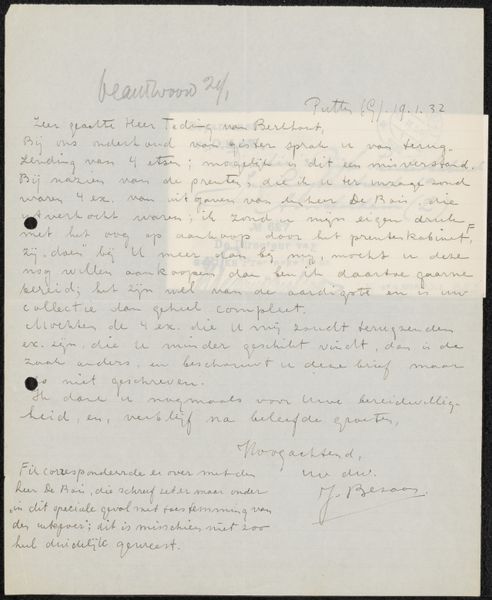 beantwoord 21/1
Putten (G). 19.1.32
Zeer geachte Heer Teding van Berkhout,
Bij ons onderhoud van gister sprak u van terug-
zending van 4 etsen; mogelijk is dit een misverstand.
Bij nazien van de prenten, die ik U ter inzage zond
waren 4 ex. van uitgaven van den heer De Bois, die
uitverkocht waren; ik zond u mijn eigen druk
met het oog op aankoop door het prentenkabinet F,
zij doen bij U meer dan bij mij, mocht u deze
nog willen aankoopen, dan ben ik daartoe gaarne
bereid; het zijn wel van de aardigste en is uw
collectie dan geheel compleet.
Mochten de 4 ex. die U mij zoudt terugzenden
ex. zijn, die U minder geschikt vindt, dan is de
zaak anders, en beschouwt U deze brief maar
als niet geschreven.
Ik dank U nogmaals voor Uwe bereidwillig-
heid, en, verblijf na beleefde groeten,
Hoogachtend,
uw dw.
F ik correspondeerde er over met den
heer De Bois, die schreef zeker maar onder
"in dit speciale geval met toestemming van
den uitgever"; dit is misschien niet zoo
heel duidelijk geweest.